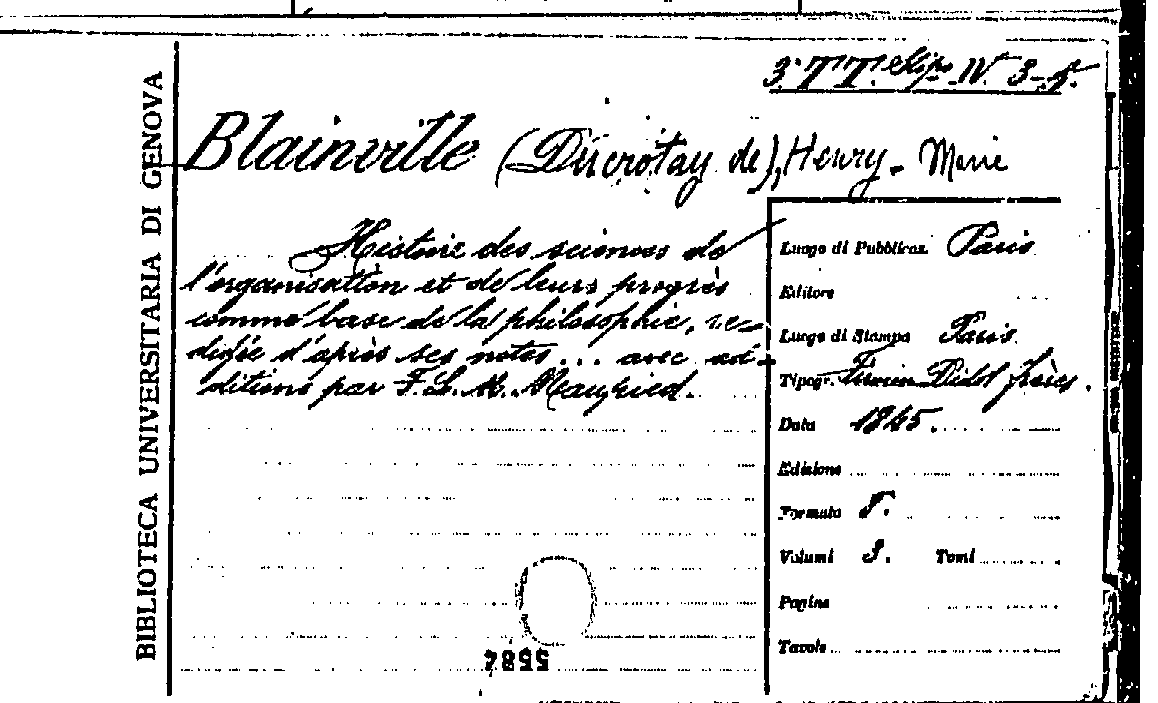 BIBLIOTECA UNIVERSITARIA DI GENOVA
3. T T. IV. 3-5.
Blainville (Ducrotay de), Henry-Marie
Histoire des sciences de
l'organisation et de leurs progrès
comme base de la philosophie, ré-
digée d'après ses notes... avec ad-
ditions par F. L. M. Maupied.
Luogo di Pubblicaz. Paris
Editore
Luogo di Stampa Paris.
Tipogr. Firmin Didot frères.
Data 1845.
Edizione
Formato 8.
Volumi 3. Tomi
Pagine
Tavole